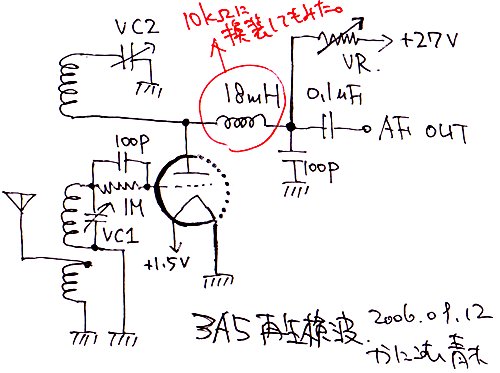 VC2
10kΩに
換装してもみた。
+27V
VR.
18mH
0.1μF
AF OUT
100P
100P
1M
VC1
+1.5V
3A5 再生検波.
2006.01.12